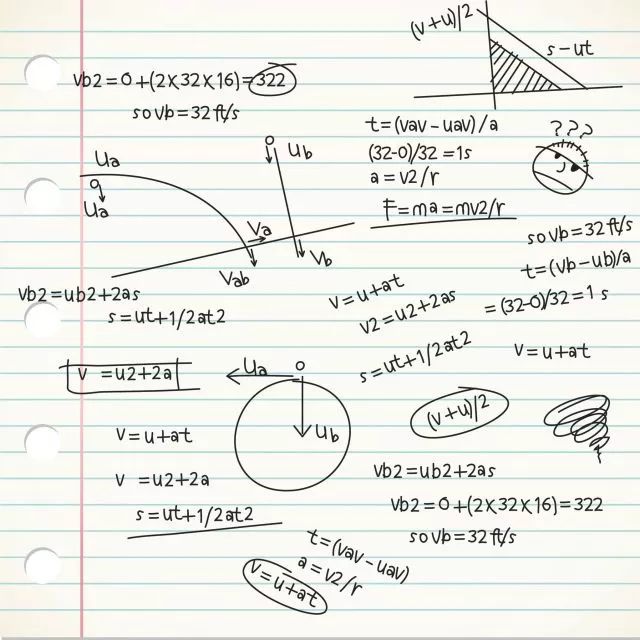 (v+u)/2
s-ut
vb2=0+(2x32x16)=322
so vb=32ft/s
t=(vav-uav)/a
(32-0)/32=1s
a=v2/r
F=ma=mv2/r
???
Ua
Ua
Ub
Va
Vab
Vb
so vb=32f/s
t=(vb-ub)/a
=(32-0)/32=1 s
v=u+at
vb2=ub2+2as
s=ut+1/2at2
v=u+at
v2=u2+2as
s=ut+1/2at2
v =u2+2a
Ua
Ub
v=u+at
v =u2+2a
s=ut+1/2at2
(v+u)/2
vb2=ub2+2as
vb2=0+(2x32x16)=322
so vb=32ft/s
t=(vav-uav)
a=v2/r
v=u+at